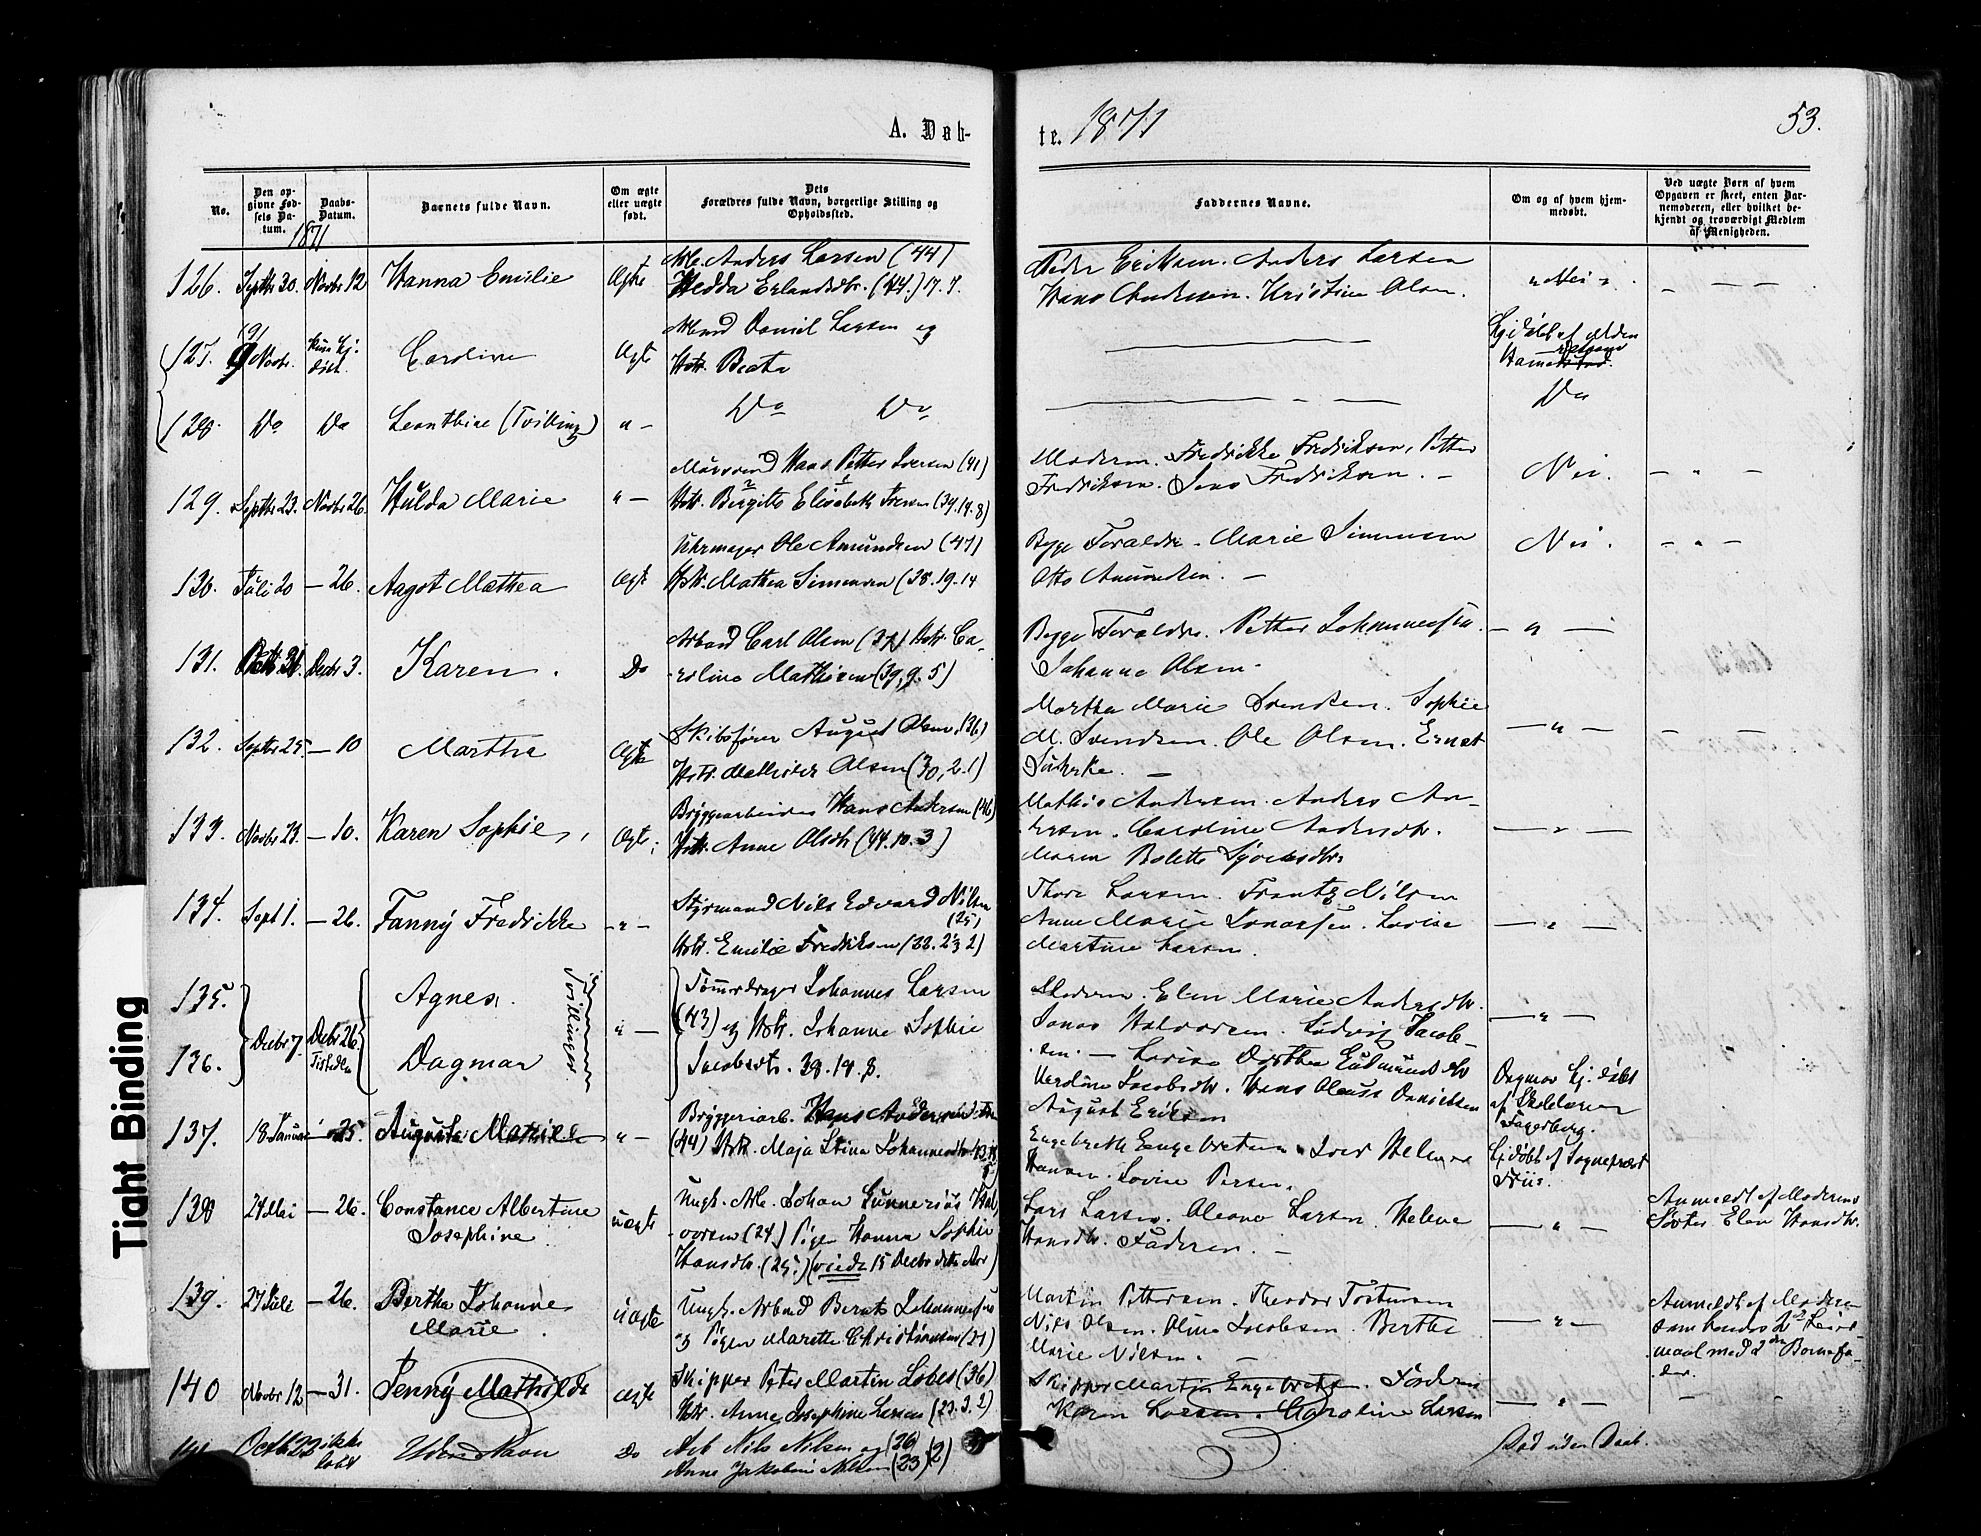 A. Døb-
te. 1871
53.
No.
Den op-
givne Fød-
sels Da-
tum.
Daabs-
Datum.
Barnets fulde Navn.
Om ægte
eller uægte
født.
Dets
Forældres fulde Navn, borgerlige Stilling og
Opholdssted.
Faddernes Navne.
Om og af hvem hjem-
medøbt.
Ved uægte Børn af hvem
Opgaven er skeet, enten Bar-
nemoderen, eller hvilket be-
kjendt og troværdigt Medlem
af Menigheden.
1871
126. Septbr 30. Novbr 12 Hanna Emilie Ægte Anders Larsen (44)
Hedda Erlandsdtr. (44.) 17. 7.
Peder Eriksen. Anders Larsen
Hans Andersen. Kristine Olsen.
Nei
127. 9 Novbr. Caroline Ægte Daniel Larsen og
Hstr. Beate
128. Do Do Leonthine (Tvilling) " - Do Do
Do
129. Septbr 23. Novbr 26. Hulda Marie " - Hans Petter Iversen (41)
Hstr. Birgitte Elisabeth Iversen (39.14.8)
Moderen. Fredrikke Fredriksen, Petter
Fredriksen. Jens Fredriksen. -
Nei.
130. Juli 20 - 26. Aagot Mathea Ægte Uhrmager Ole Amundsen (47)
Hstr. Mathea Simensen (38.19.14
Begge Forældre. Marie Simensen
Otto Amundsen. -
Nei.
131. Decbr 3. Karen. Do Arbmd Carl Olsen (37) Hstr. Ca-
roline Mathisen (39, 9. 5)
Begge Forældre. Petter Johannessen.
Johanne Olsen.
132. Septbr 25. - 10 Martha Ægte Skibsfører August Olsen (36)
Hstr. Mathilde Olsen (30, 2.1)
Martha Marie Svendsen. Sophie
M. Svendsen. Ole Olsen. Ernst
133. Novbr 23. - 10. Karen Sophie Ægte Bryggearbeider Hans Andersen (46)
Hstr. Anne Olsdtr (44.10.3)
Mathis Andersen. Anders An-
dersen. Caroline Andersdtr.
Maren Bolette
134. Sept 1. - 26. Fanny Fredrikke - " - Styrmand Nils Edvard Nilsen
(25)
Hstr. Emilie Fredriksen (22. 2 2)
Thore Larsen. Frantz Nilsen
Anne Marie Jonassen. Lovise
Martine Larsen.
135. Agnes. Tvillinger
136. Decbr 7. Decbr 26. Dagmar " - Tømerdrager Johannes Larsen
(43) og Hstr. Johanne Sophie
Jacobsdtr. 39. 14. 8.
Moderen. Elen Marie Andersdtr.
Jonas Halvorsen. Ludvig Jacob-
sen. - Lovise Dorthea
Hans Olaus Danielsen
August Eriksen
Dagmar hj. døbt
af Skolelærer
Fagerberg.
137. 18 Januar 25. Augusta Mathilde " - Bryggeriarb. Hans Andersen
(44) Hstr. Maja Stina Johannesdtr
Engebreth Engebretsen. Iver Helge
Hansen. Lovise Persen.
hj.døbt af Sogneprest
Friis.
138 24 Mai - 26. Constance Albertine
Josephine uægte Ungk. Johan Gunnerius Hal-
vorsen (24) Pigen Hanna Sophie
Hansdtr. (25.) (viede 15 Decbr dette Aar)
Lars Larsen. Oleane Larsen. Helene
Hansdtr. Faderen. -
Anmeldt af Moderens
Søster Elen Hansdtr.
139. 27 Juli - 26. Bertha Johanne
Marie. uægte Ungk. Arbmd Bernt Johannessen
og Pigen Marethe Christiansen (21)
Martin Pettersen. Theodor Torstensen
Nils Olsen. Oline Jacobsen. Berthe
Marie Nilsen. -
Anmeldt af Moderen
som hendes 2det Leier-
maal med 2den Barnefa-
der.
140 Novbr 12 - 31. Jenny Mathilde Ægte Skipper Peter Martin Løbes (36)
Hstr. Anne Josephine Larsen (23.3.2)
Skipper Martin Engebretsen. Faderen
Karen Larsen. Caroline Larsen
141 Octb. 22 ikke
døbt Uden Navn Do Arb Nils Nilsen og (26)
Anne Jakobine Nilsen (23) (2)
Død uden Daab.
Tight Binding